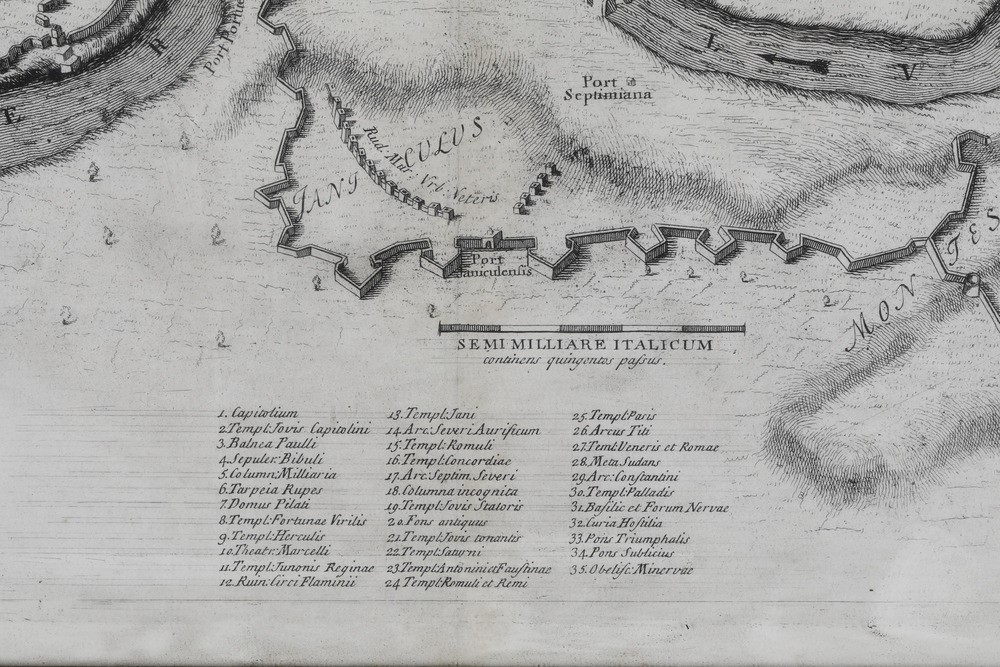 T E
R
Port Portue
L
V
Port
Septimiana
JANICULUS
Rud. Mur. Vrb. Veteris
Port
Janiculensis
MON
TES
SEMI MILLIARE ITALICUM
continens quingentos paſsus.
1. Capitolium
2. Templ: Jovis Capitolini
3. Balnea Paulli
4. Sepulcr: Bibuli
5. Column: Milliaria
6. Tarpeia Rupes
7. Domus Pilati
8. Templ: Fortunae Virilis
9. Templ: Herculis
10. Theatr: Marcelli
11. Templ: Junonis Reginae
12. Ruin: Circi Flaminii
13. Templ: Jani
14. Arc: Severi Aurificum
15. Templ: Romuli
16. Templ: Concordiae
17. Arc: Septim. Severi
18. Columna incognita
19. Templ: Jovis Statoris
20. Fons antiquus
21. Templ: Jovis tonantis
22. Templ: Saturni
23. Templ: Antonini et Fauſtinae
24 Templ: Romuli et Remi
25. Templ: Pacis
26. Arcus Titi
27. Teml: Veneris et Romae
28. Meta Sudans
29. Arc: Conſtantini
30. Templ: Palladis
31. Baſilic et Forum Nervae
32. Curia Hoſtilia
33. Pons Triumphalis
34. Pons Sublicius
35. Obeliſc: Minervae